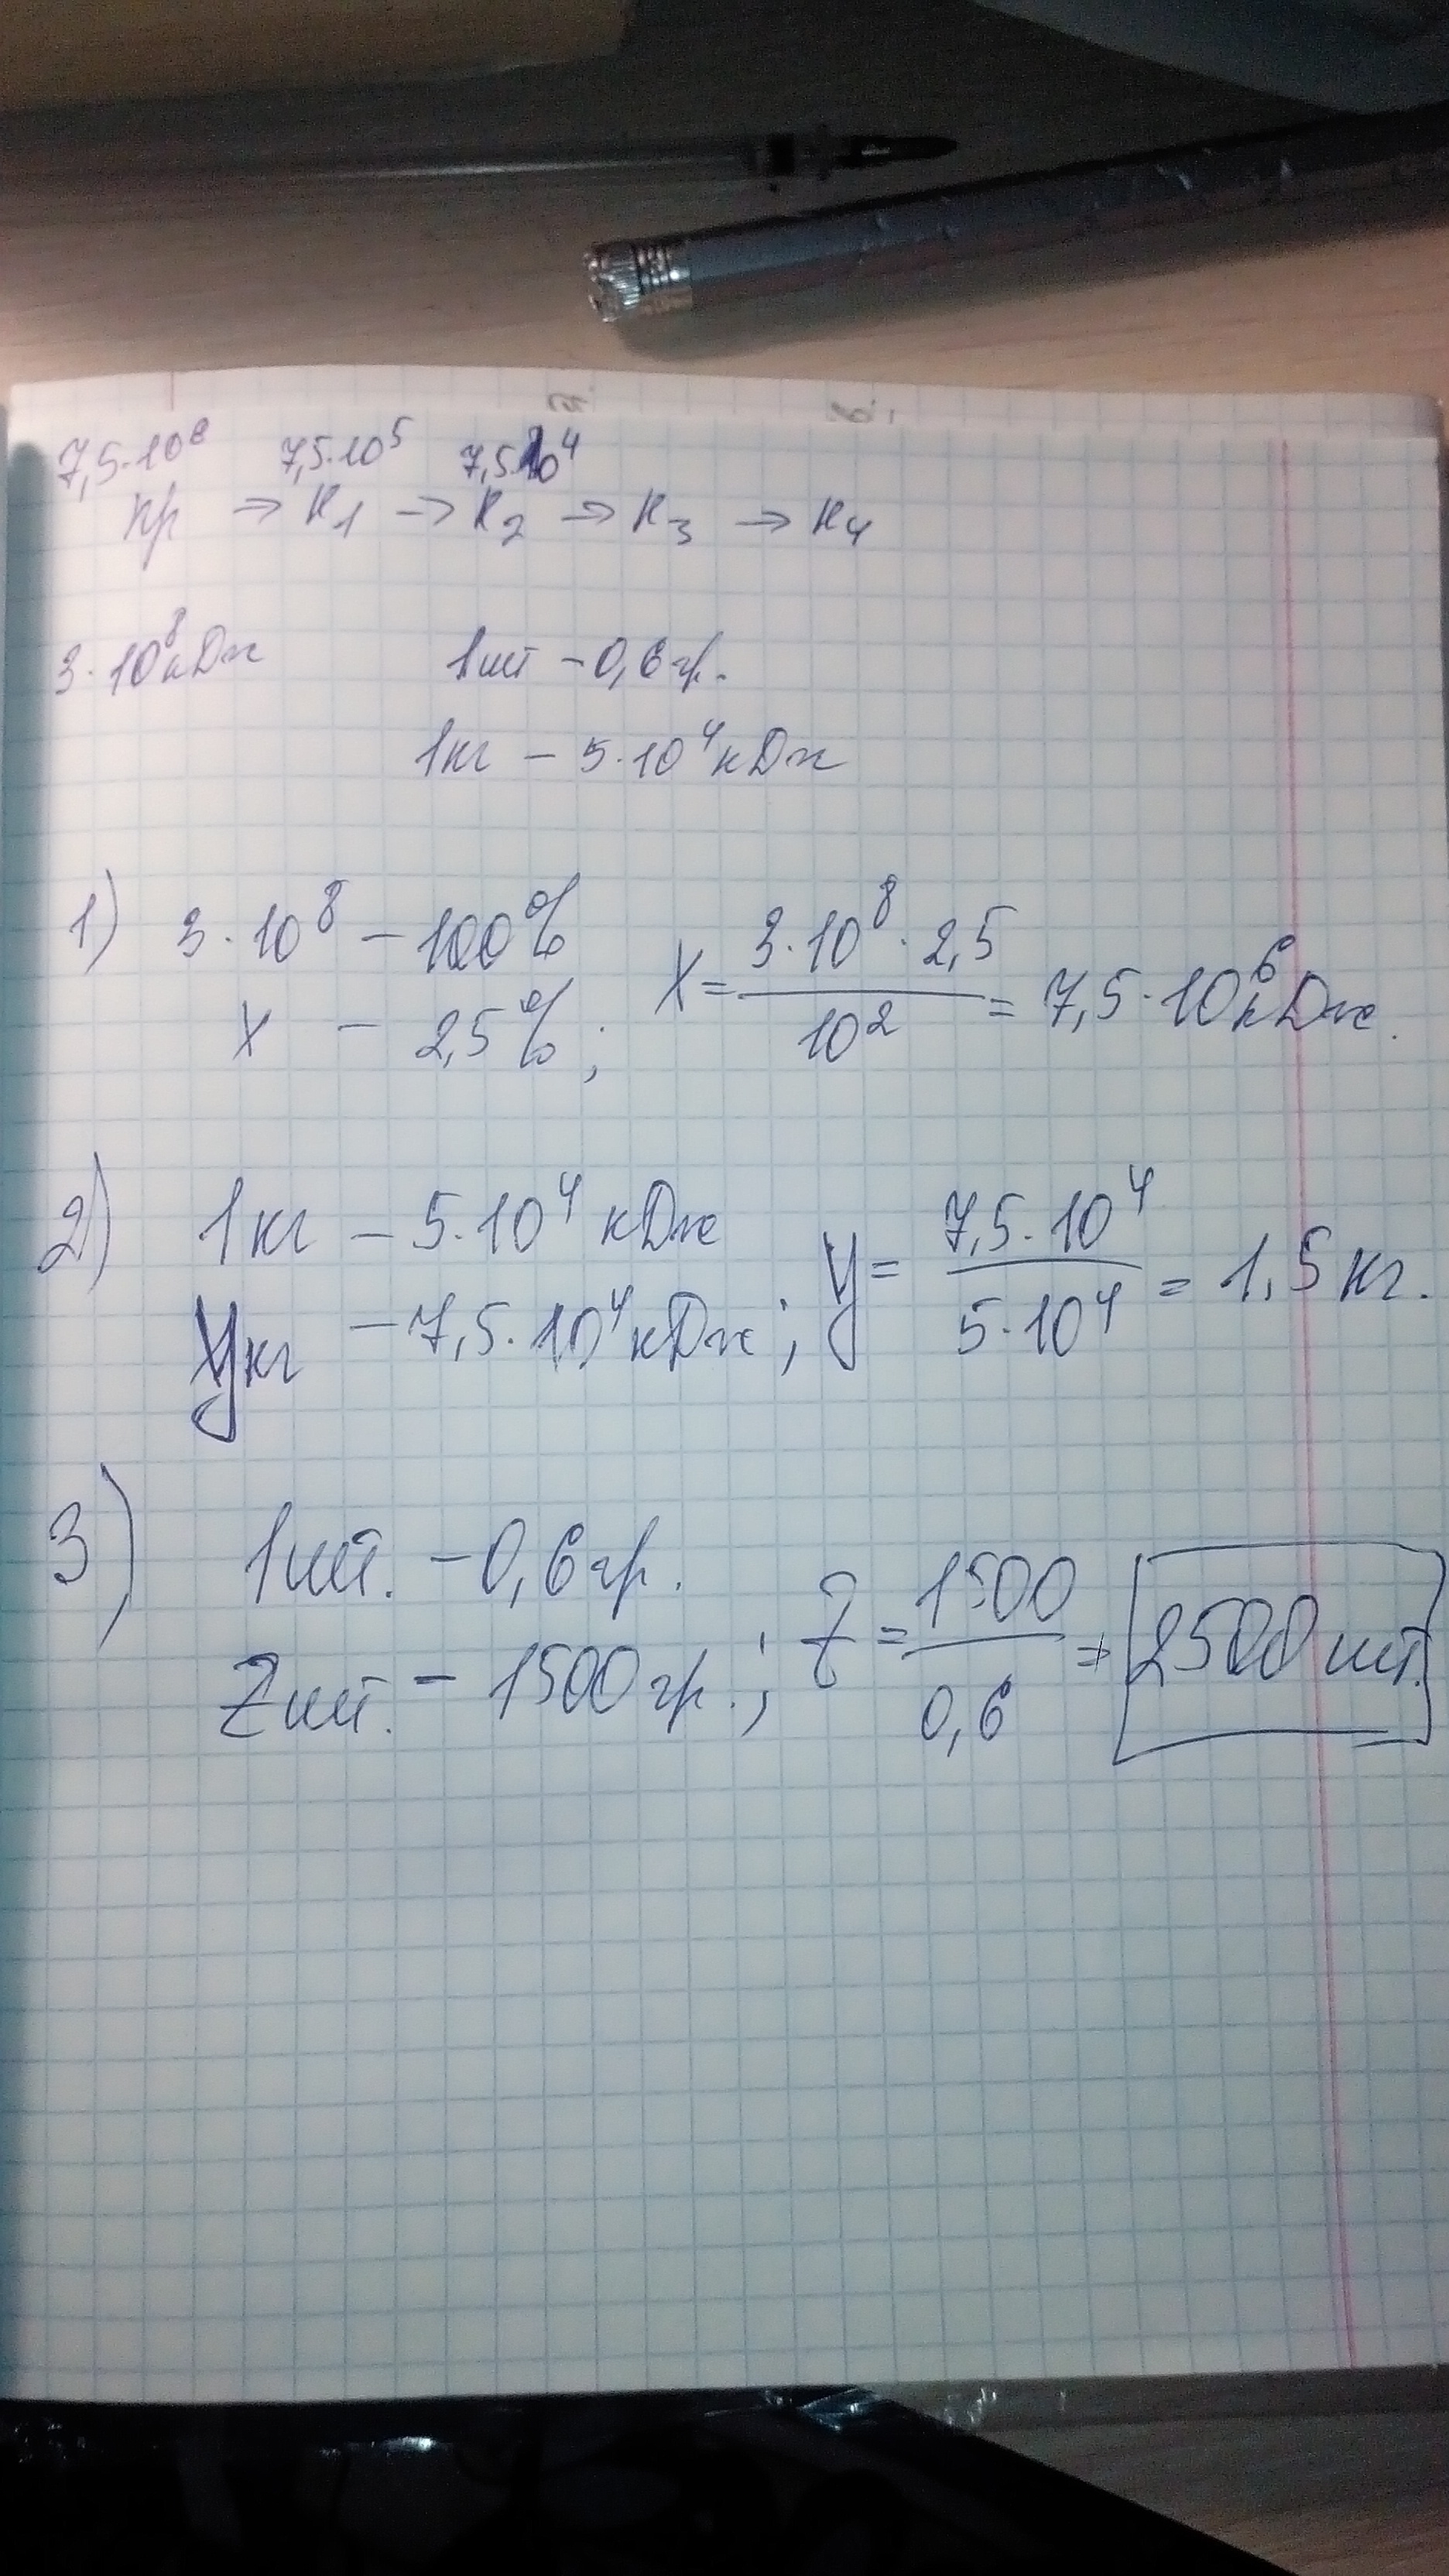 7,5·10⁶ 7,5·10⁵ 7,5·10⁴
пр → К₁ → К₂ → К₃ → К₄
3·10⁸ кДж 1шт – 0,6 гр.
1кг – 5·10⁴ кДж
1) 3·10⁸ – 100%
x – 2,5%; x = 3·10⁸·2,5 / 10² = 7,5·10⁶ кДж.
2) 1кг – 5·10⁴ кДж
y кг – 7,5·10⁴ кДж; y = 7,5·10⁴ / 5·10⁴ = 1,5 кг.
3) 1шт. – 0,6 гр.
Z шт. – 1500 гр.; Z = 1500 / 0,6 = 2500 шт.